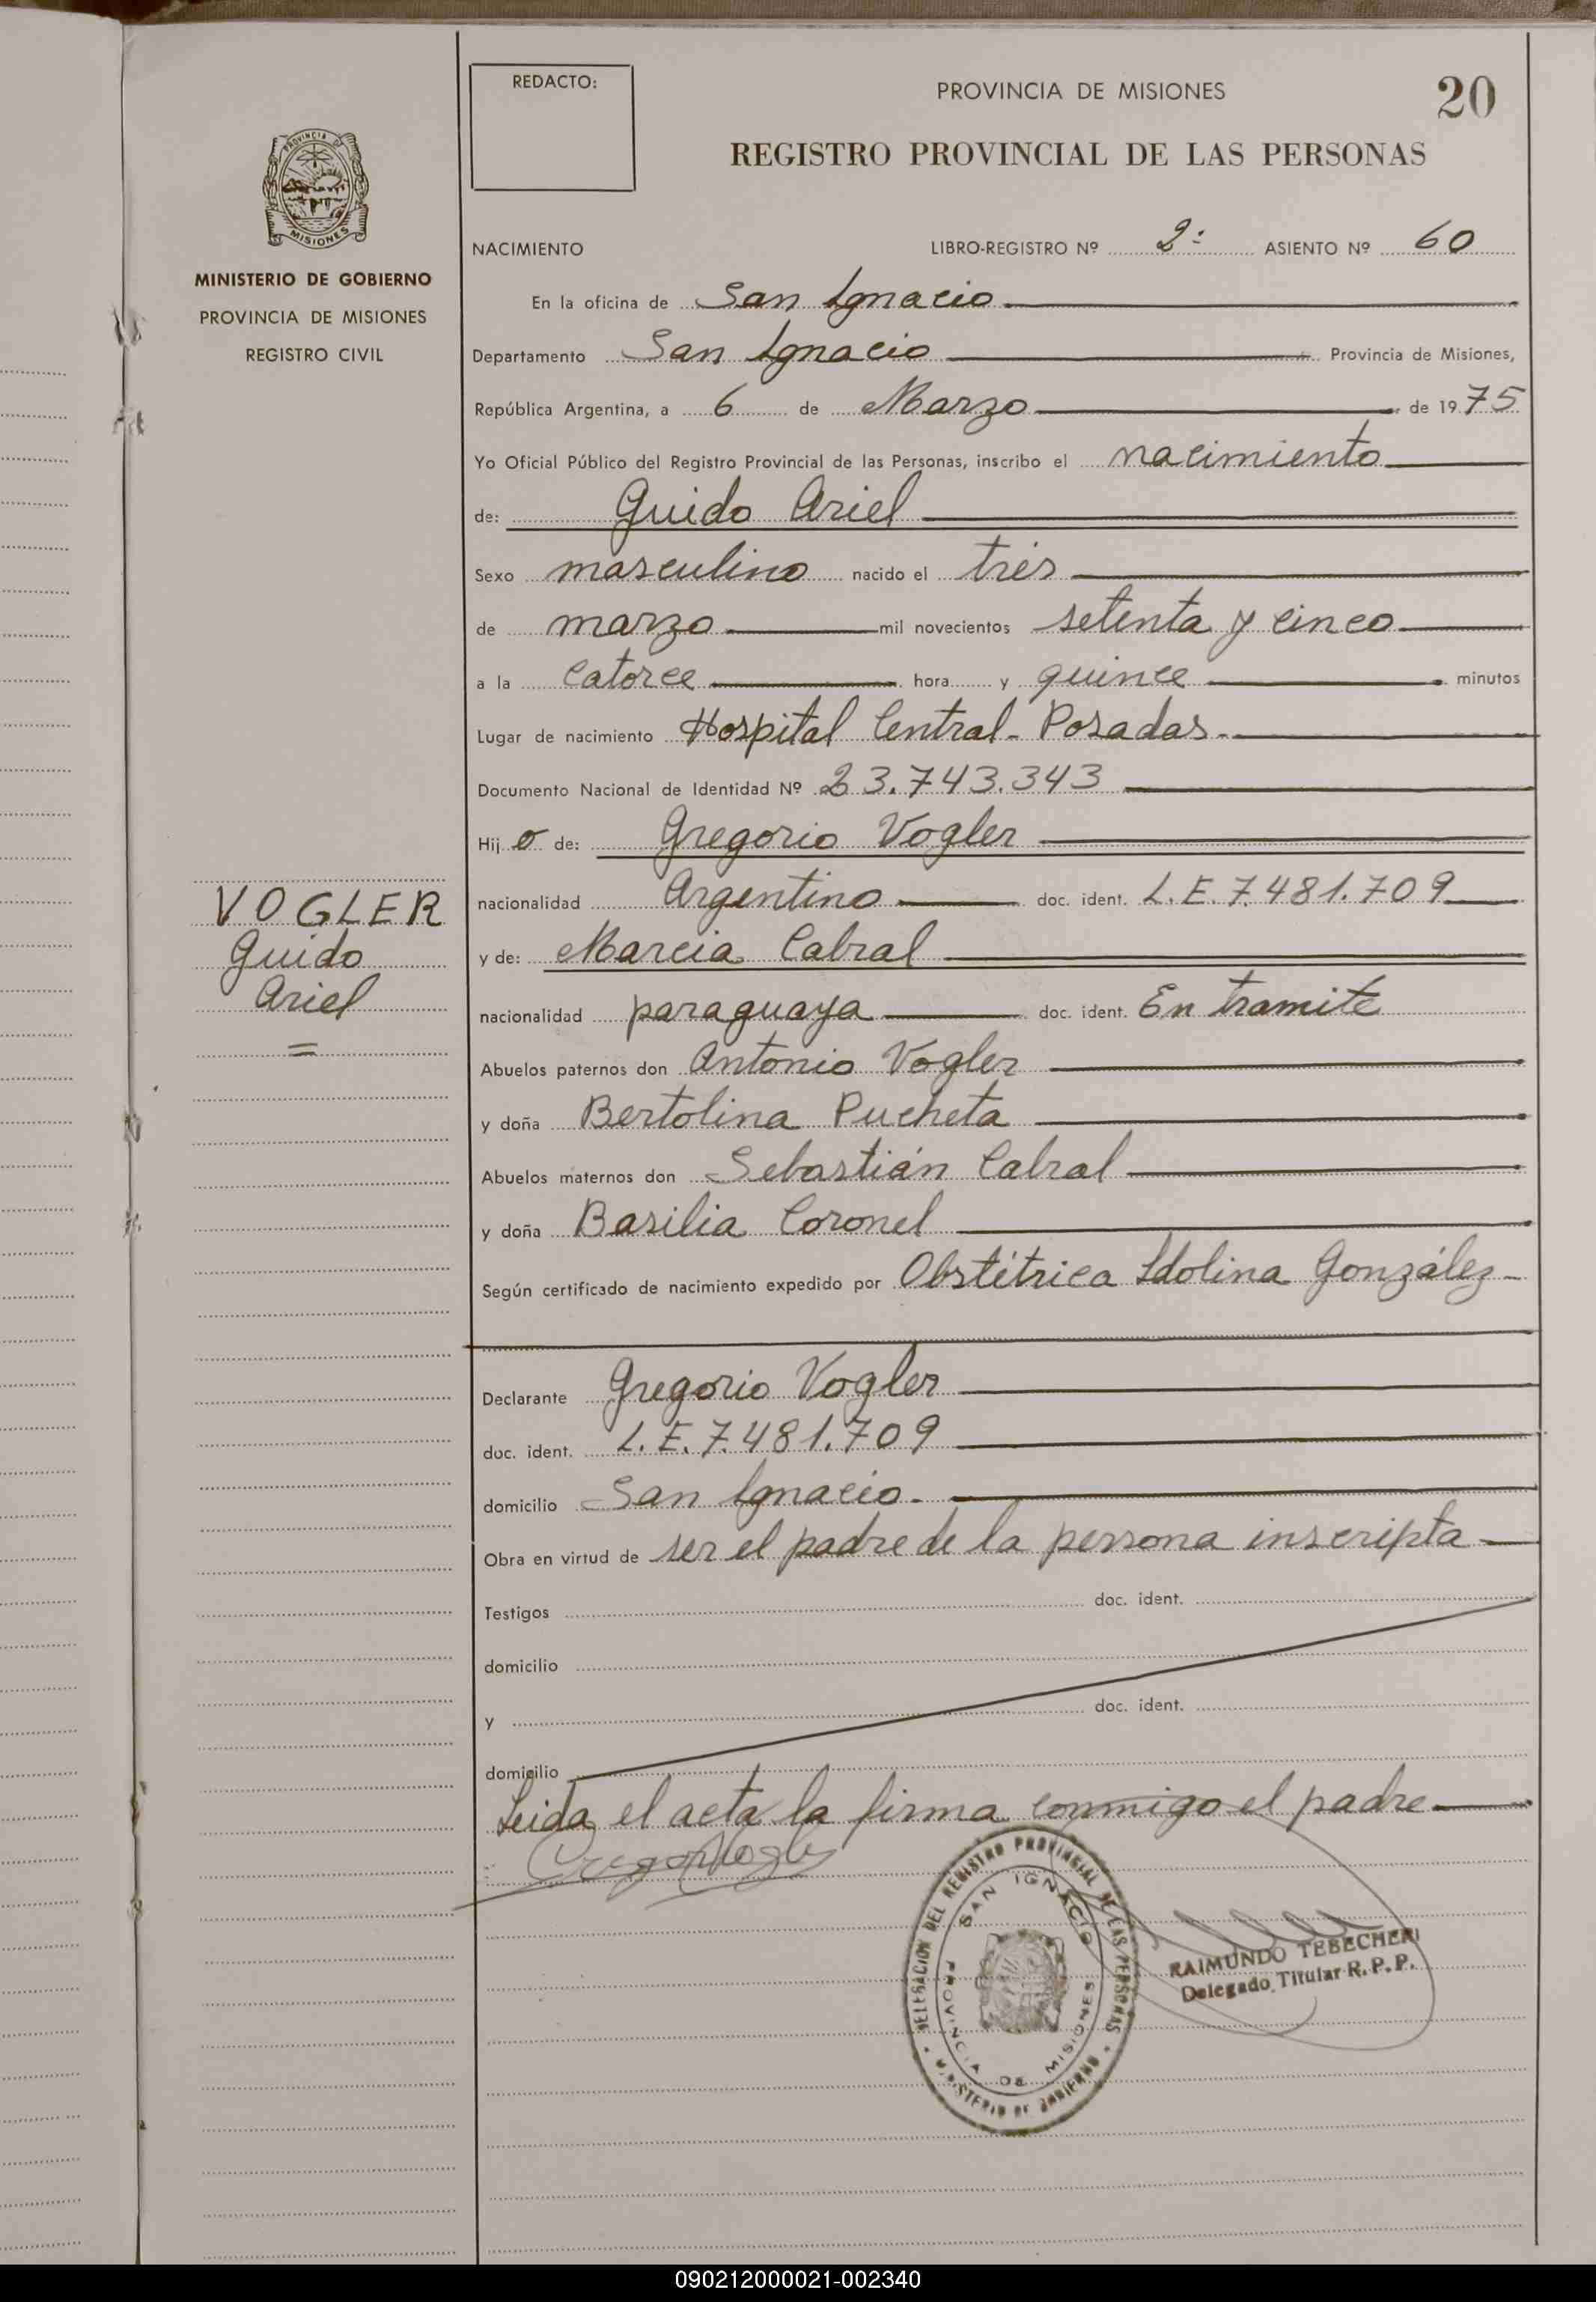 REDACTO:
PROVINCIA DE MISIONES
20
REGISTRO PROVINCIAL DE LAS PERSONAS
PROVINCIA DE
MISIONES
MINISTERIO DE GOBIERNO
PROVINCIA DE MISIONES
REGISTRO CIVIL
NACIMIENTO LIBRO-REGISTRO Nº 2º ASIENTO Nº 60
En la oficina de San Ignacio
Departamento San Ignacio Provincia de Misiones,
República Argentina, a 6 de Marzo de 1975
Yo Oficial Público del Registro Provincial de las Personas, inscribo el nacimiento
de: Guido Ariel
Sexo masculino nacido el trés
de marzo mil novecientos setenta y cinco
a la catorce hora y quince minutos
Lugar de nacimiento Hospital Central - Posadas.
Documento Nacional de Identidad Nº 23.743.343
Hijo de: Gregorio Vogler
nacionalidad Argentino doc. ident. L.E. 7.481.709
y de: Marcia Cabral
nacionalidad paraguaya doc. ident. En tramite
Abuelos paternos don Antonio Vogler
y doña Bertolina Pucheta
Abuelos maternos don Sebastián Cabral
y doña Basilia Coronel
Según certificado de nacimiento expedido por Obstétrica Idolina González
Declarante Gregorio Vogler
doc. ident. L.E. 7.481.709
domicilio San Ignacio.
Obra en virtud de ser el padre de la persona inscripta
Testigos doc. ident.
domicilio
y doc. ident.
domicilio
Leida el acta la firma conmigo el padre
VOGLER
Guido
Ariel
=
DELEGACION DEL REGISTRO PROVINCIAL DE LAS PERSONAS
SAN IGNACIO
PROVINCIA DE MISIONES
MINISTERIO DE GOBIERNO
RAIMUNDO TEBECHERI
Delegado Titular R.P.P.
090212000021-002340